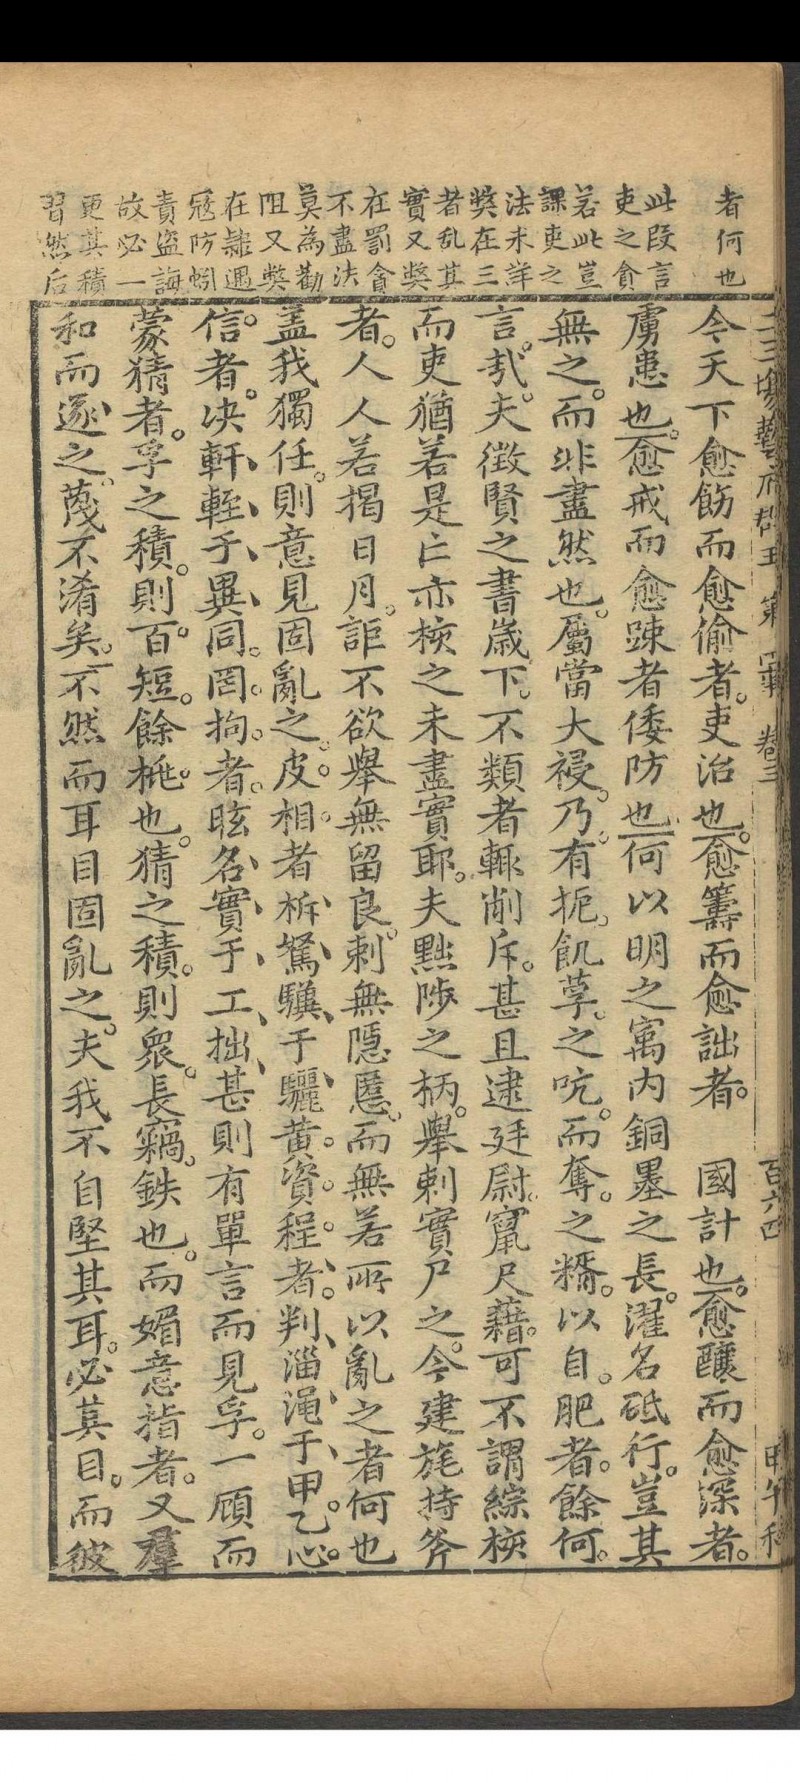 者何也
此段言
吏之貪
若此豈
課吏之
法未詳
獘在三
者乱其
實又獘
在罰貪
不盡法
莫為勸
阻又獘
在隷遇
冦防蜵
責盜誨
故必一
更其積
習然后
今天下愈飭而愈偷者吏治也愈籌而愈詘者 國計也愈釀而愈深者
虜患也愈戒而愈踈者倭防也何以明之寓内銅墨之長濯名砥行豈其
無之而非盡然也屬當大祲乃有扼飢莩之吭而奪之糈以自肥者餘何
言㢤夫徴賢之書歲下不類者輙削斥甚且逮廷尉竄尺藉可不謂綜核
而吏猶若是亡亦核之未盡實耶夫黜陟之柄舉刺實尸之今建旄持斧
者人人若揭日月詎不欲舉無留良刺無隱慝而無若所以亂之者何也
盖我獨任則意見固亂之皮相者柝駑驥于驪黄資程者判淄渑于甲乙心
信者决軒輊于異同罔拘者昡名實于工拙甚則有單言而見孚一頋而
蒙猜者孚之積則百短餘桃也猜之積則衆長竊鈇也而媚意指者又羣
和而逐之蔑不淆矣不然而耳目固亂之夫我不自堅其耳必其目而彼
二三塲藝府群玉 卷三
百六四
甲午科